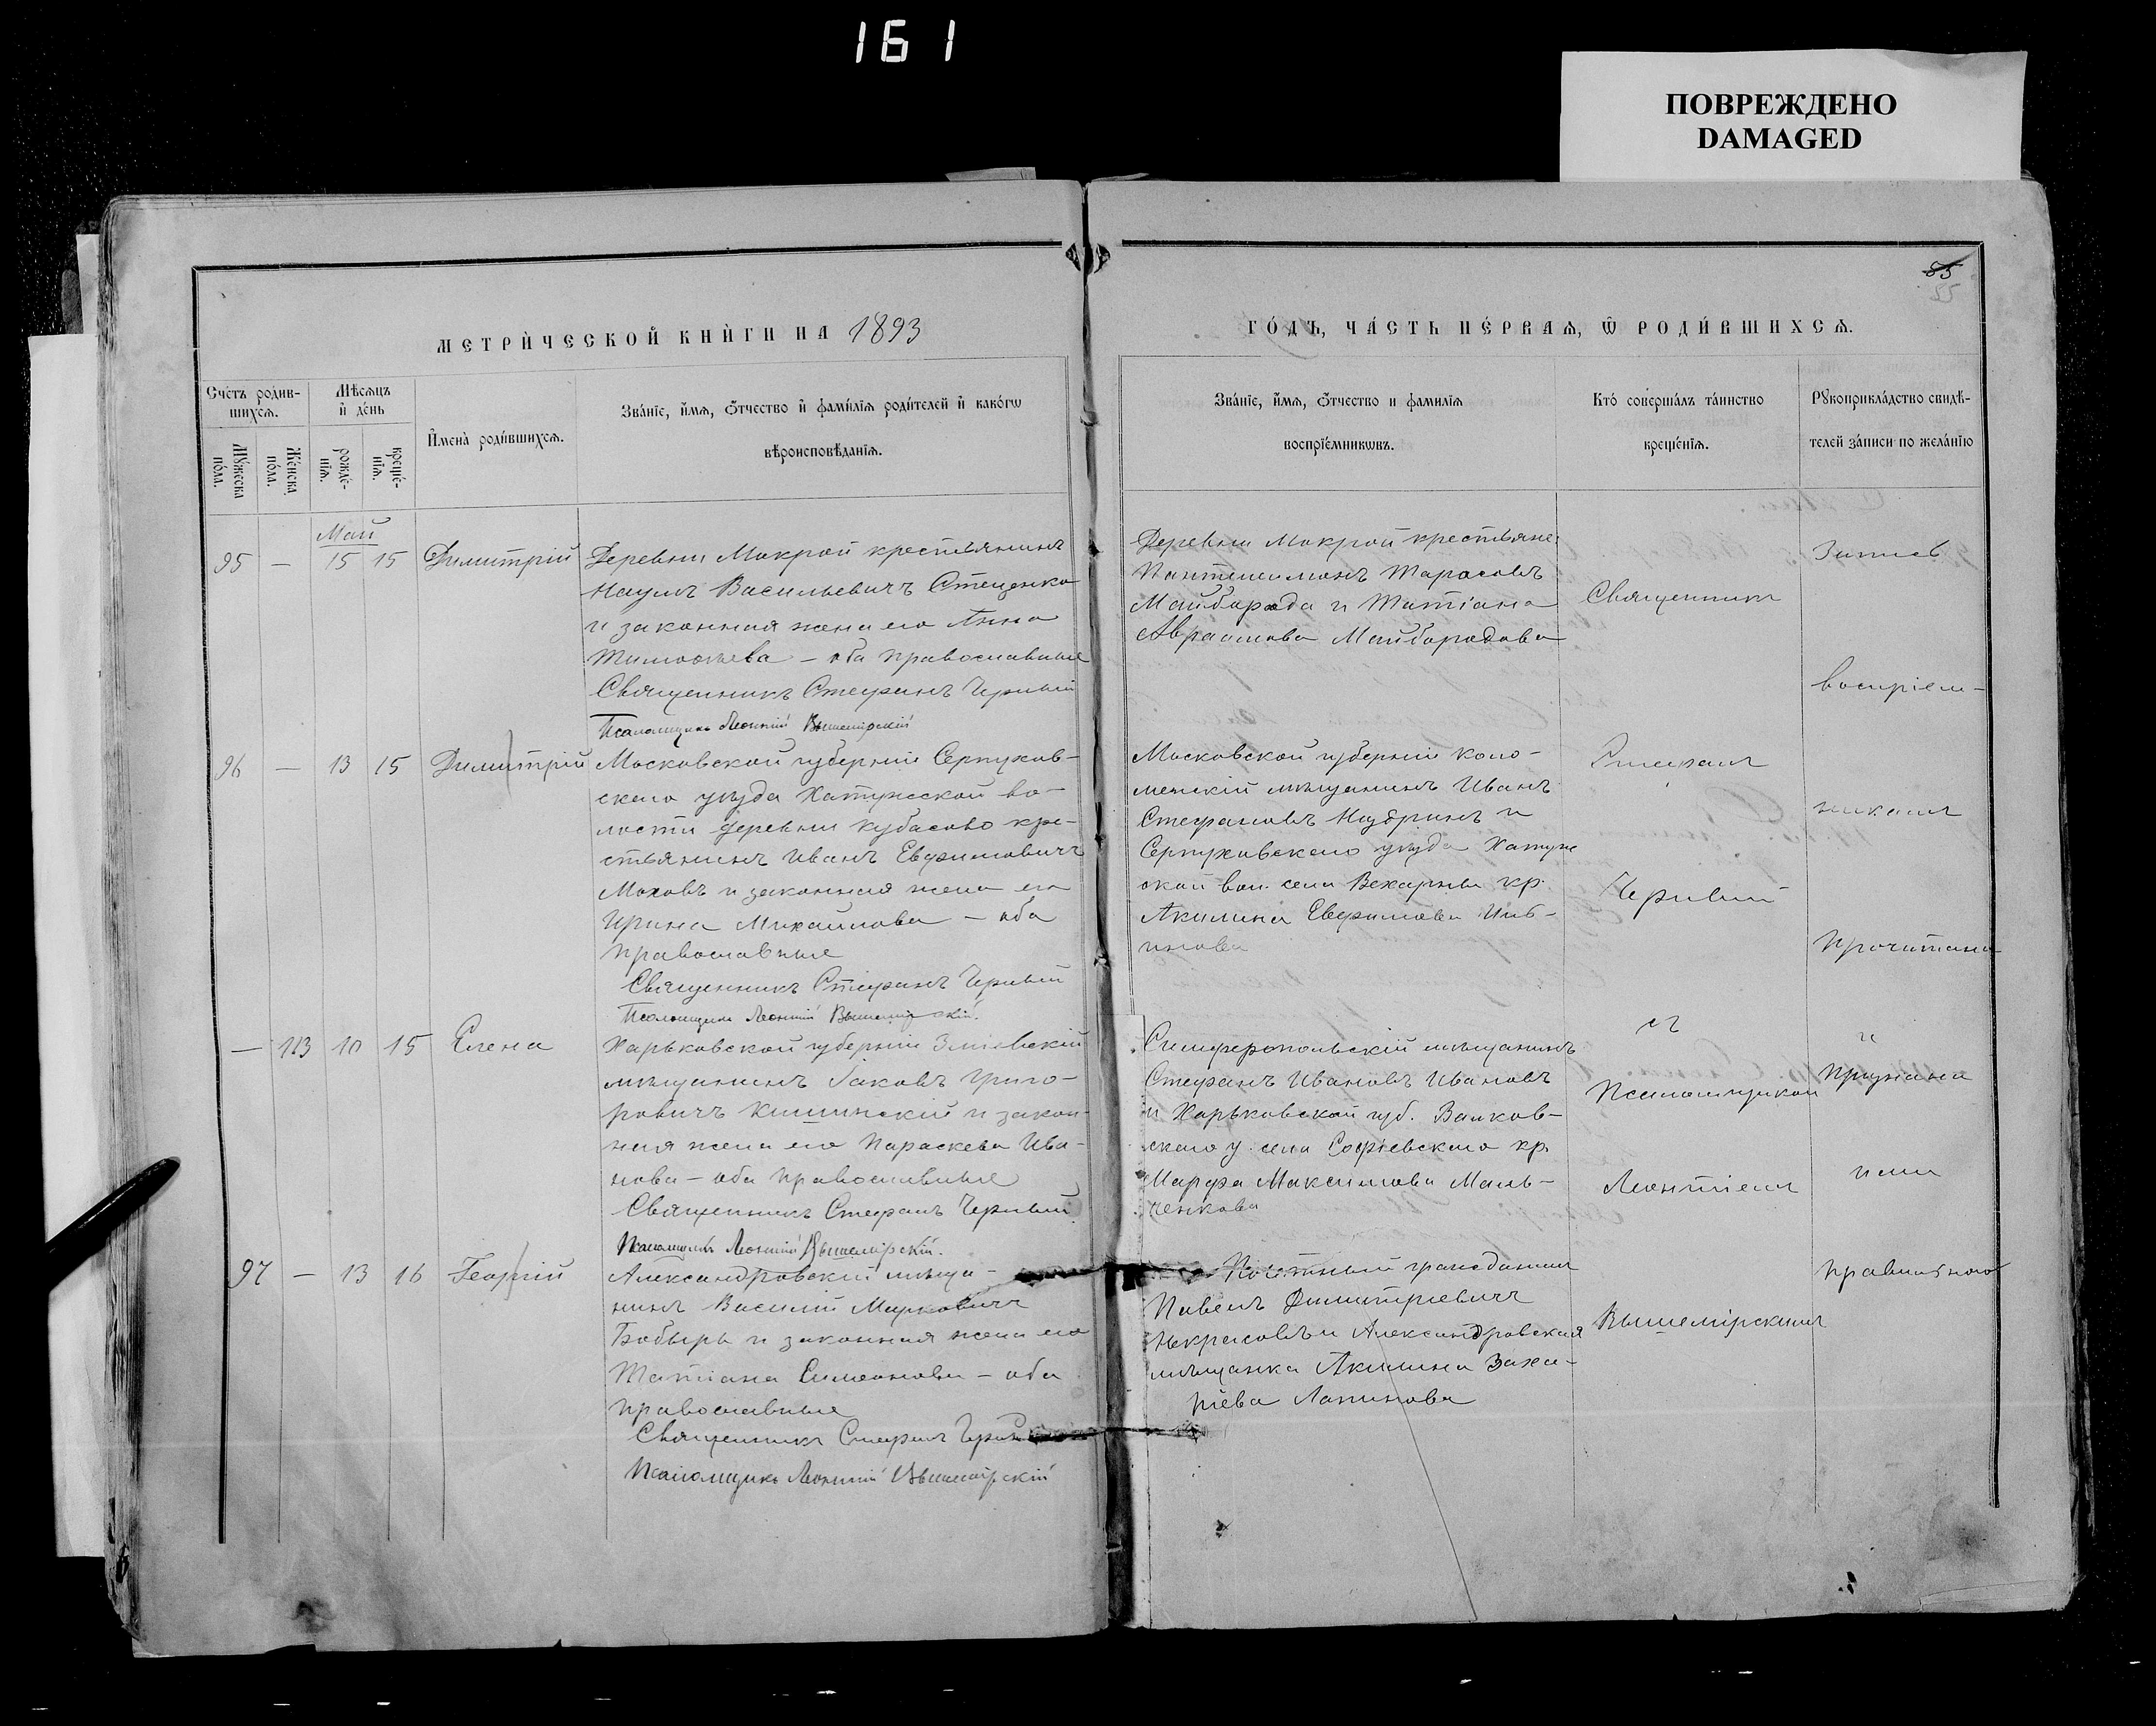 161
ПОВРЕЖДЕНО
DAMAGED
85
55
МЕТРИ́ЧЕСКОЙ КНИ́ГИ НА 1893
ГО́ДЪ, ЧА́СТЬ ПЕ́РВАѦ, Ѿ РОДИ́ВШИХСѦ.
Сче́тъ роди́в-
шихсѧ.
Мꙋжеска по́ла.
Же́нска по́ла.
Мѣ́сѧцъ
и҆ де́нь
рожде́-
нїѧ.
креще́-
нїѧ.
И҆мена̀ роди́вшихсѧ.
Зва́нїе, и҆́мѧ, ѻ҆́тчество и҆ фами́лїѧ роди́телей и҆ како́гѡ
вѣроисповѣ́данїѧ.
Зва́нїе, и҆́мѧ, ѻ҆́тчество и фами́лїѧ
воспрїе́мникѡвъ.
Кто́ соверша́лъ та́инство
креще́нїѧ.
Рꙋкоприкла́дство свидѣ́-
телей за́писи по жела́нїю
Май
95 — 15 15 Димитрій
Деревни Мокрой крестьянинъ
Наумъ Васильевичъ Стеценко
и законная жена его Анна
Тимоѳеева – оба православные
Священникъ Стефанъ Черный
Псаломщикъ Леонтій Вышемірскій
Деревни Мокрой крестьяне:
Пантелеимонъ Тарасовъ
Майборода и Татіана
Авраамова Майбородова
96 — 13 15 Димитрій
Московской губерніи Серпухов-
скаго уѣзда Хатунской во-
лости деревни Кубасово кре-
стьянинъ Иванъ Евфимовичъ
Моховъ и законная жена его
Ирина Михаилова – оба
православные
Священникъ Стефанъ Черный
Псаломщикъ Леонтій Вышемірскій.
Московской губерніи Коло-
менскій мѣщанинъ Иванъ
Стефановъ Мудринъ и
Серпуховскаго уѣзда Хатун
ской вол. села кр.
Акилина Евфимова
— 113 10 15 Елена
Харьковской губерніи Зміевскій
мѣщанинъ Іаковъ Григо-
ровичъ Кишинскій и закон-
ная жена его Параскева Ива-
нова – оба православные
Священникъ Стефанъ Черный
Псаломщикъ Леонтій Вышемірскій.
Симферопольскій мѣщанинъ
Стефанъ Ивановъ Ивановъ
и Харьковской губ. Валков-
скаго у. села Софіевскаго кр.
Марфа Максимова Маль-
ченкова
97 — 13 16 Георгій
Александровскій мѣща-
нинъ Василій Марковичъ
Бобырь и законная жена его
Татіана Симеонова – оба
православные
Священникъ Стефанъ Черный
Псаломщикъ Леонтій Вышемірскій
Почетный гражданинъ
Павелъ Димитріевичъ
Некрасовъ и Александровская
мѣщанка Акилина Заха-
ріева Лапинова
Священникъ
Стефанъ
Черный
съ
Псаломщикомъ
Леонтіемъ
Вышемірскимъ
Запись
воспріем-
никамъ
прочитана
и
признана
ими
правильною